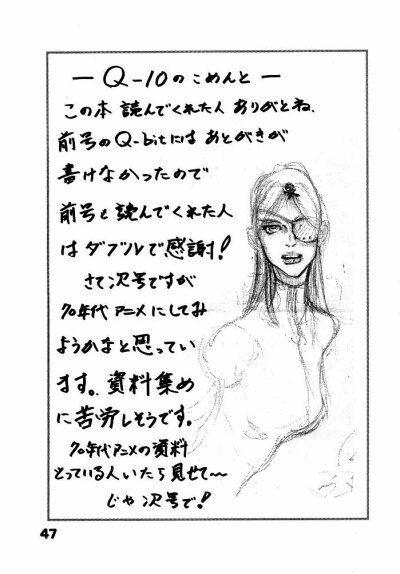 — Q-10のこめんと —
この本 読んでくれた人 ありがとね、
前号のQ-bitには あとがきが
書けなかったので
前号も読んでくれた人
は ダブルで感謝!
さて次号ですが
70年代アニメにしてみ
ようかなと思ってい
ます。資料集め
に苦労しそうです。
70年代アニメの資料
とっている人いたら見せて〜
じゃ次号で!
47